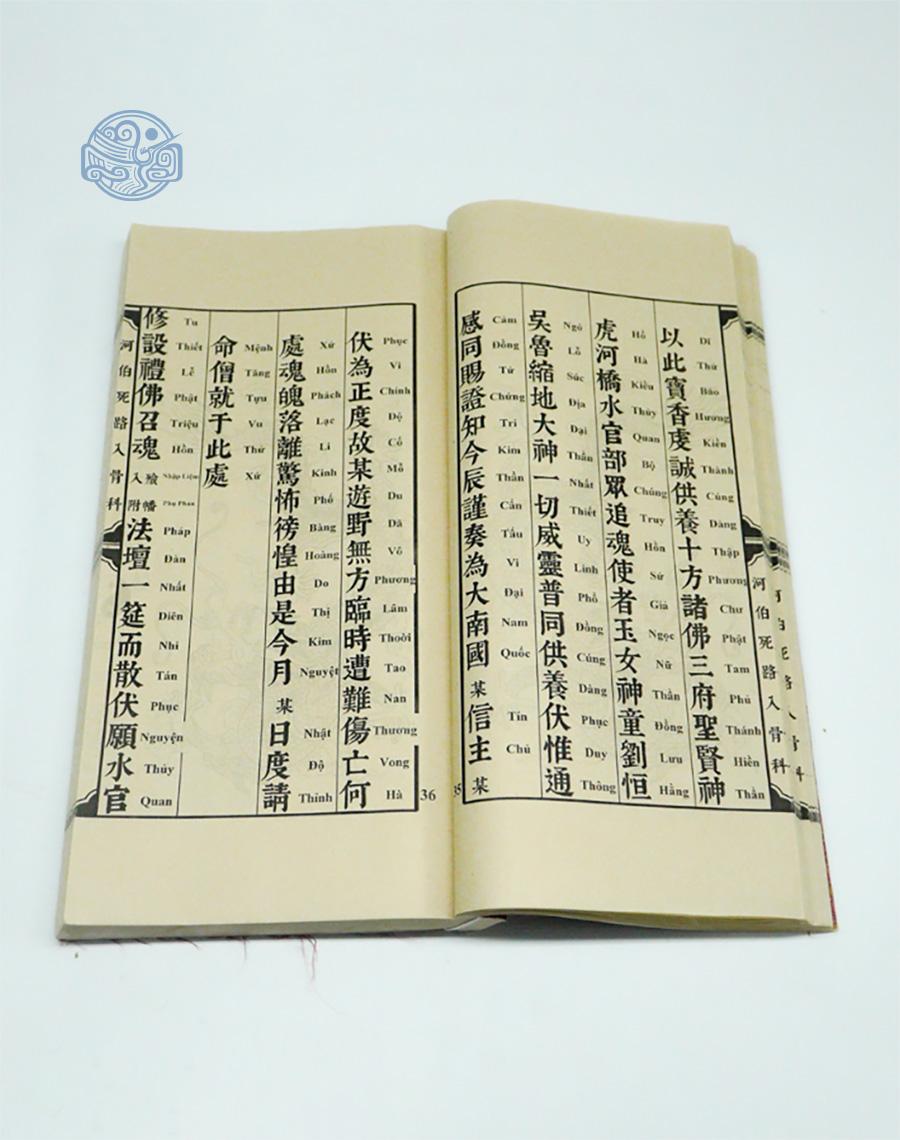 河伯死路入骨科
以此寶香虔誠供養十方諸佛三府聖賢神
Dĩ Thử Bảo Hương Kiền Thành Cúng Dàng Thập Phương Chư Phật Tam Phủ Thánh Hiền Thần
虎河橋水官部眾追魂使者玉女神童劉恒
Hổ Hà Kiều Thủy Quan Bộ Chúng Truy Hồn Sứ Giả Ngọc Nữ Thần Đồng Lưu Hằng
吳魯縮地大神一切威靈普同供養伏惟通
Ngô Lỗ Súc Địa Đại Thần Nhất Thiết Uy Linh Phổ Đồng Cúng Dàng Phục Duy Thông
感同賜證知今辰謹奏為大南國某信主某
Cảm Đồng Tứ Chứng Tri Kim Thần Cẩn Tấu Vi Đại Nam Quốc Tín Chủ
35
36
伏為正度故某遊野無方臨時遭難傷亡何
Phục Vi Chính Độ Cố Mỗ Du Dã Vô Phương Lâm Thoời Tao Nan Thương Vong Hà
處魂魄落離驚怖徬惶由是今月某日度請
Xứ Hồn Phách Lạc Li Kinh Phố Bàng Hoàng Do Thị Kim Nguyệt Nhật Độ Thỉnh
命僧就于此處
Mệnh Tăng Tựu Vu Thử Xứ
修設禮佛召魂入殮附幡法壇一筵而散伏願水官
Tu Thiết Lễ Phật Triệu Hồn Nhập Liệm Phụ Phan Pháp Đàn Nhất Diên Nhi Tán Phục Nguyện Thủy Quan
河伯死路入骨科